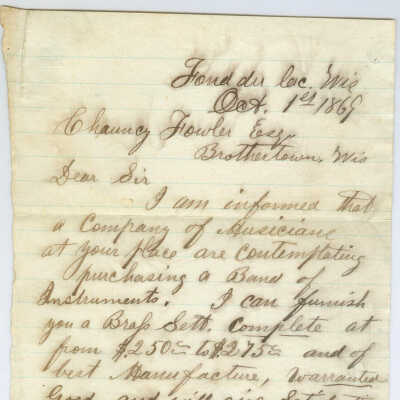 Fond du lac. Wis
Oct. 1st 1869
Chauncy Fowler Esq.
Brothertown. Wis
Dear Sir
I am informed that
a Company of Musicians
at your place are Contemplating
purchasing a Band of
Instruments. I can furnish
you a Brass Sett. Complete at
from $250 to $275 and of
best Manufacture, warranted
Good and will give